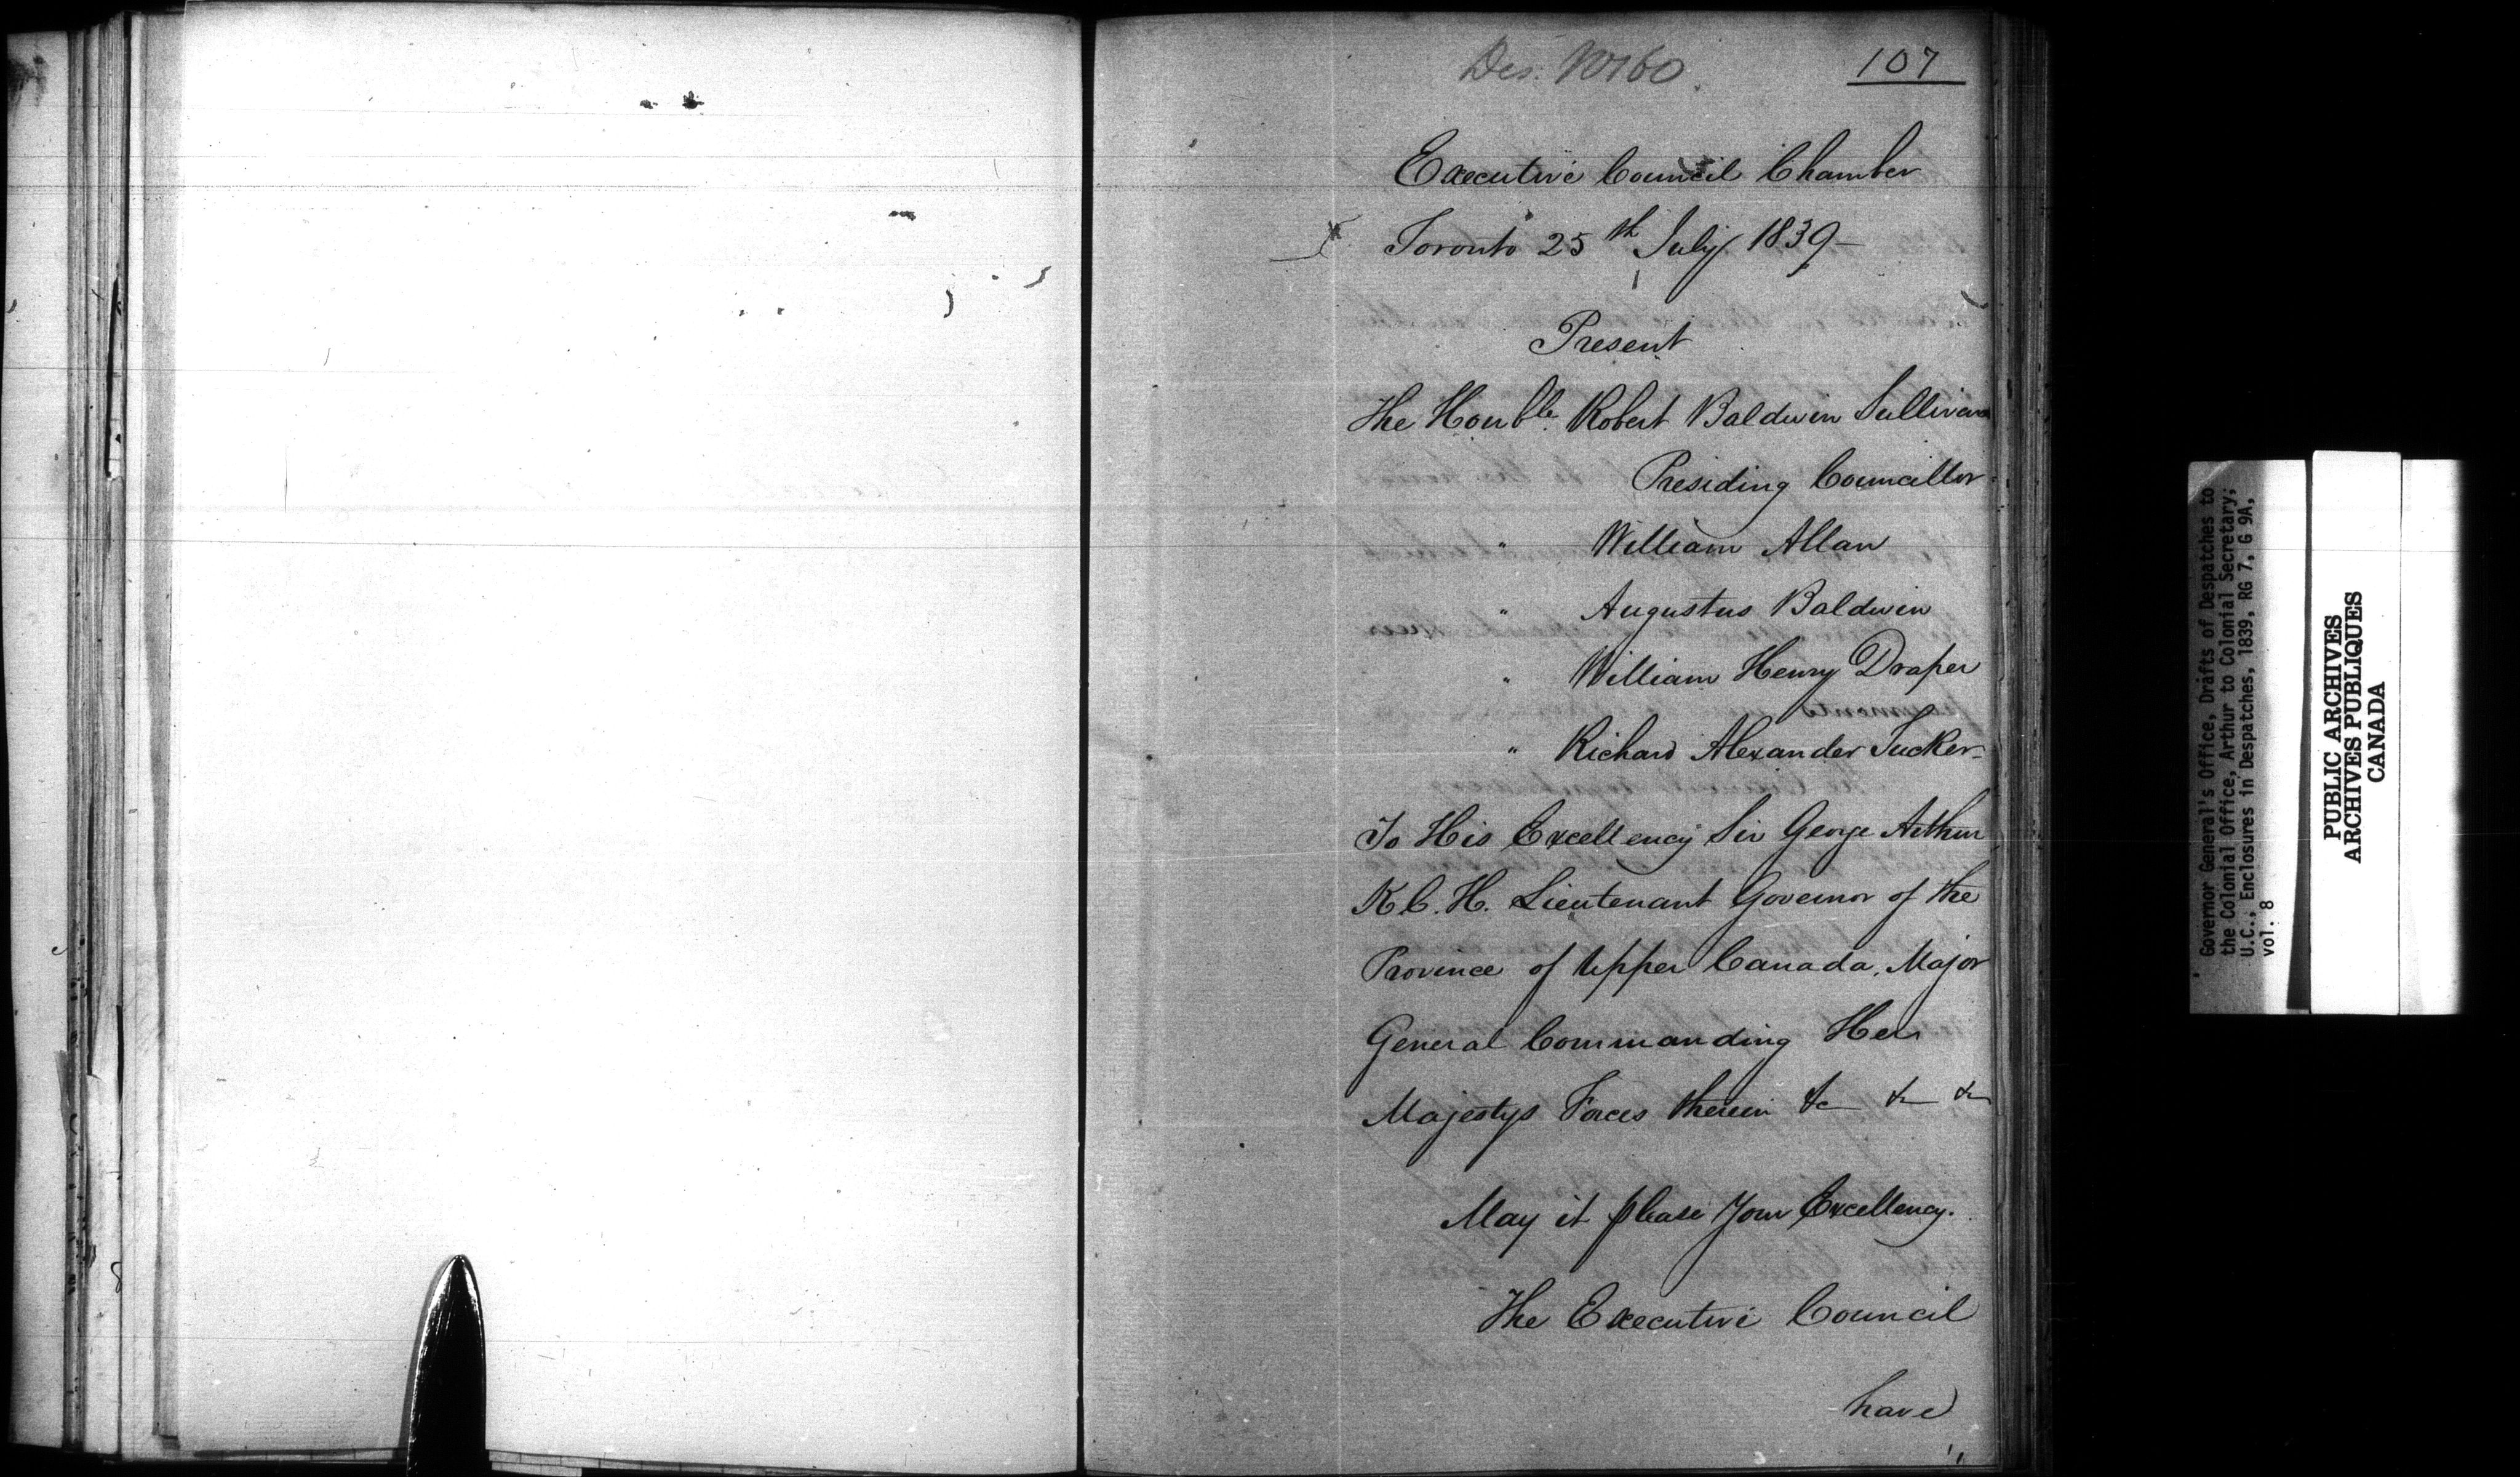 Des. No 160.
107
Executive Council Chamber
Toronto 25th July 1839 -
Present
The Honble. Robert Baldwin Sullivan
Presiding Councillor
" William Allan
" Augustus Baldwin
" William Henry Draper
" Richard Alexander Tucker -
To His Excellency Sir George Arthur
K C. H. Lieutenant Governor of the
Province of Upper Canada, Major
General Commanding Her
Majestys Forces therein &c &c &c
May it please Your Excellency.
The Executive Council
have
Governor General's Office, Drafts of Despatches to
the Colonial Office, Arthur to Colonial Secretary;
U.C., Enclosures in Despatches, 1839, RG 7, G 9A,
vol. 8
PUBLIC ARCHIVES
ARCHIVES PUBLIQUES
CANADA